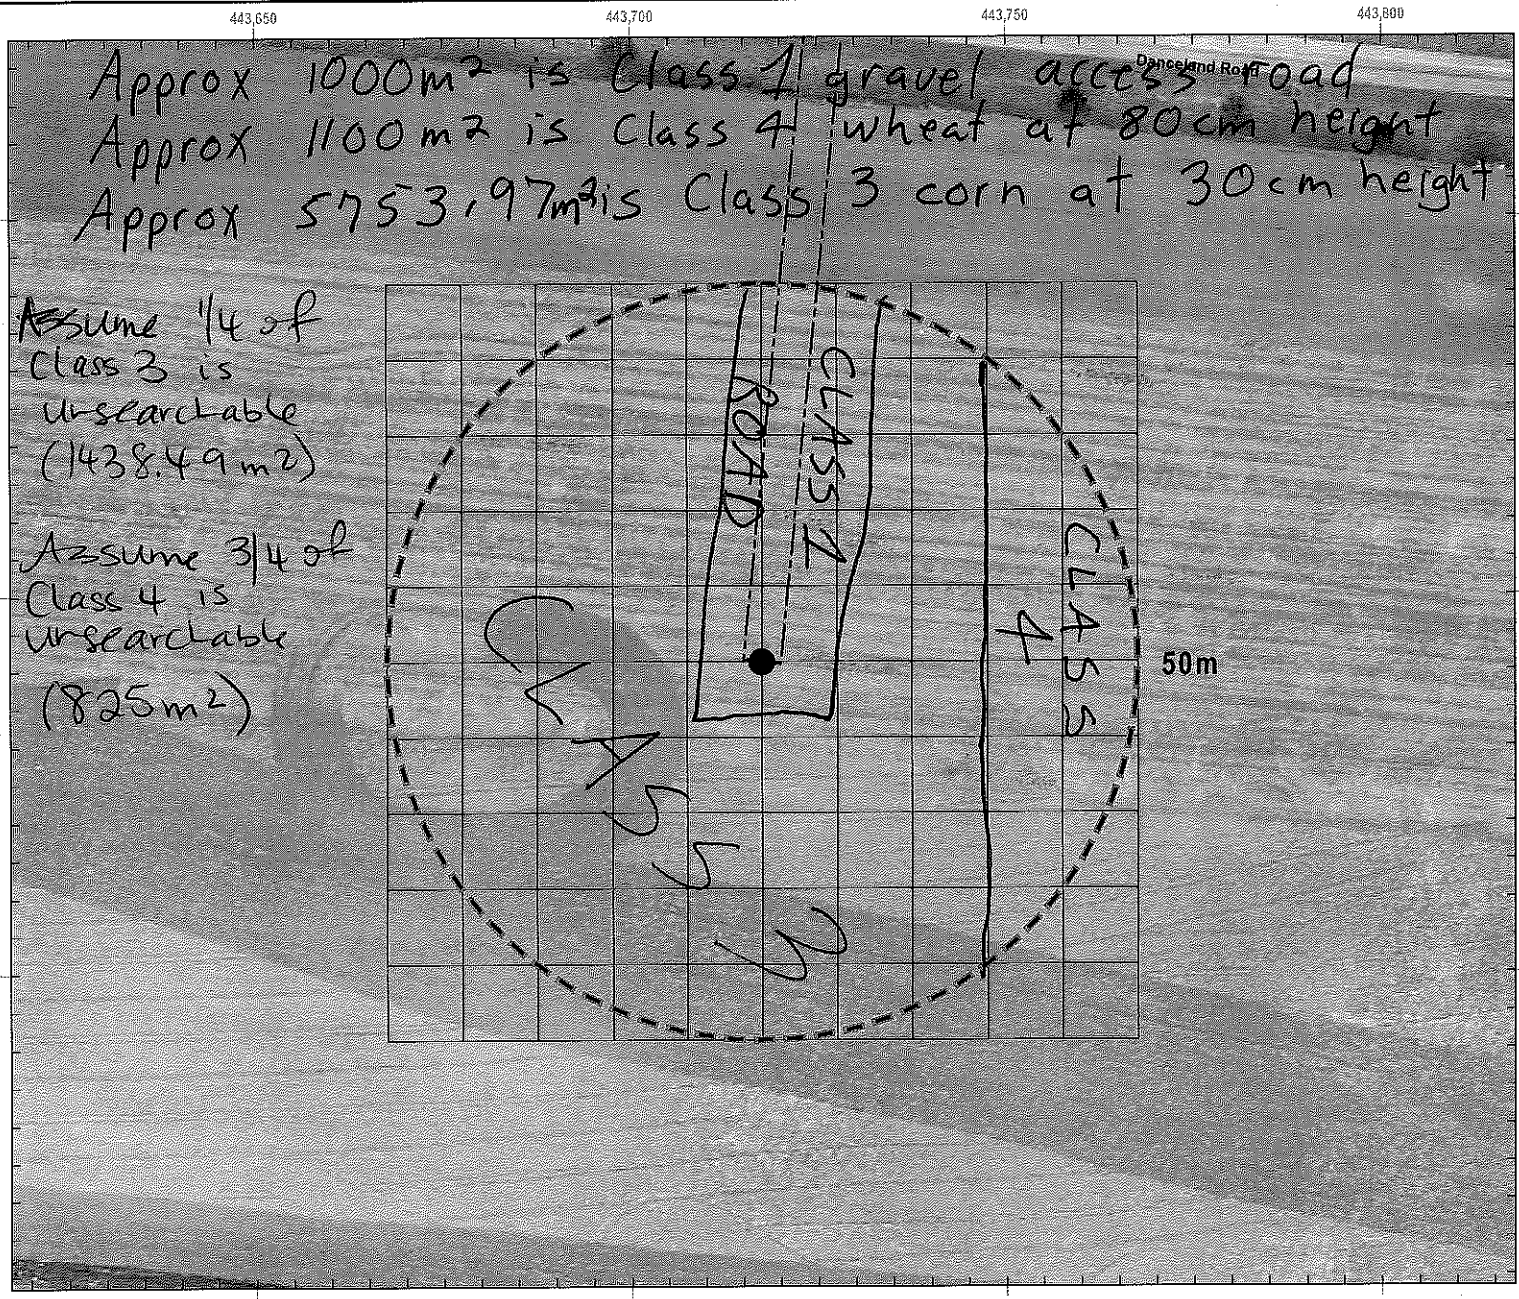 443,650 443,700 443,750 443,800
Approx 1000m² is Class 1 gravel access road
Danceland Road
Approx 1100m² is Class 4 wheat at 80cm height
Approx 5753.97m² is Class 3 corn at 30cm height
Assume 1/4 of
Class 3 is
unsearchable
(1438.49m²)
Assume 3/4 of
Class 4 is
unsearchable
(825m²)
CLASS 1
ROAD
CLASS
4
50m
CLASS 3